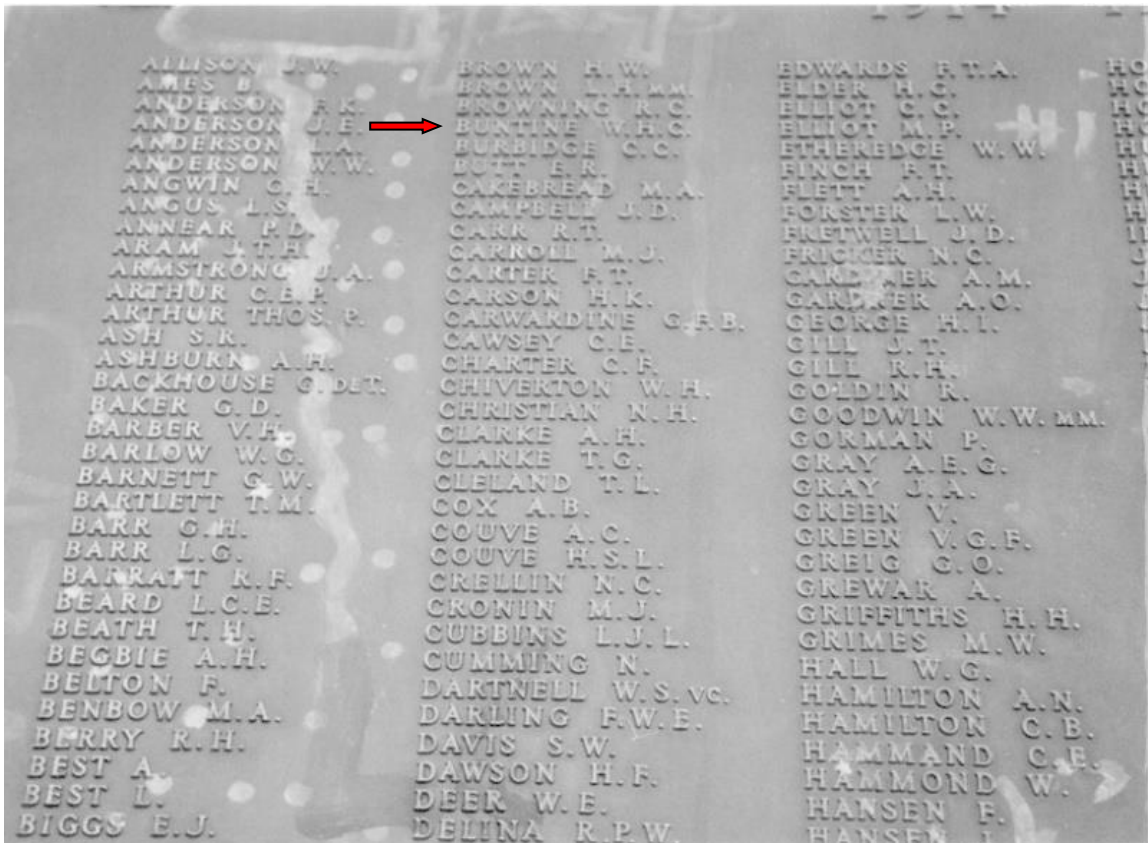 1914
ALLISON J.W.
AMES B.
ANDERSON F.K.
ANDERSON J.E.
ANDERSON J.A.
ANDERSON W.W.
ANGWIN G.H.
ANGUS L.S.
ANNEAR P.D.
ARAM J.T.H.
ARMSTRONG J.A.
ARTHUR C.E.P.
ARTHUR THOS. P.
ASH S.R.
ASHBURN A.H.
BACKHOUSE G. DET.
BAKER G.D.
BARBER V.H.
BARLOW W.G.
BARNETT G.W.
BARTLETT T.M.
BARR G.H.
BARR L.G.
BARRATT R.F.
BEARD L.C.E.
BEATH T.H.
BEGBIE A.H.
BELTON F.
BENBOW M.A.
BERRY R.H.
BEST A.
BEST L.
BIGGS E.J.
BROWN H.W.
BROWN L.H. MM.
BROWNING R.C.
BUNTINE W.H.C.
BURBIDGE C.C.
BUTT E.R.
CAKEBREAD M.A.
CAMPBELL J.D.
CARR R.T.
CARROLL M.J.
CARTER F.T.
CARSON H.K.
CARWARDINE G.F.B.
CAWSEY C.E.
CHARTER C.F.
CHIVERTON W.H.
CHRISTIAN N.H.
CLARKE A.H.
CLARKE T.G.
CLELAND T.L.
COX A.B.
COUVE A.C.
COUVE H.S.L.
CRELLIN N.C.
CRONIN M.J.
CUBBINS L.J.L.
CUMMING N.
DARTNELL W.S. VC.
DARLING F.W.E.
DAVIS S.W.
DAWSON H.F.
DEER W.E.
DELINA R.P.W.
EDWARDS F.T.A.
ELDER H.G.
ELLIOT C.C.
ELLIOT M.P.
ETHEREDGE W.W.
FINCH F.T.
FLETT A.H.
FORSTER L.W.
FRETWELL J.D.
FRICKER N.C.
GARDINER A.M.
GARDNER A.O.
GEORGE H.I.
GILL J.T.
GILL R.H.
GOLDIN R.
GOODWIN W.W. MM.
GORMAN P.
GRAY A.E.G.
GRAY J.A.
GREEN V.
GREEN V.G.F.
GREIG G.O.
GREWAR A.
GRIFFITHS H.H.
GRIMES M.W.
HALL W.G.
HAMILTON A.N.
HAMILTON C.B.
HAMMAND C.E.
HAMMOND W.
HANSEN F.
HANSEN